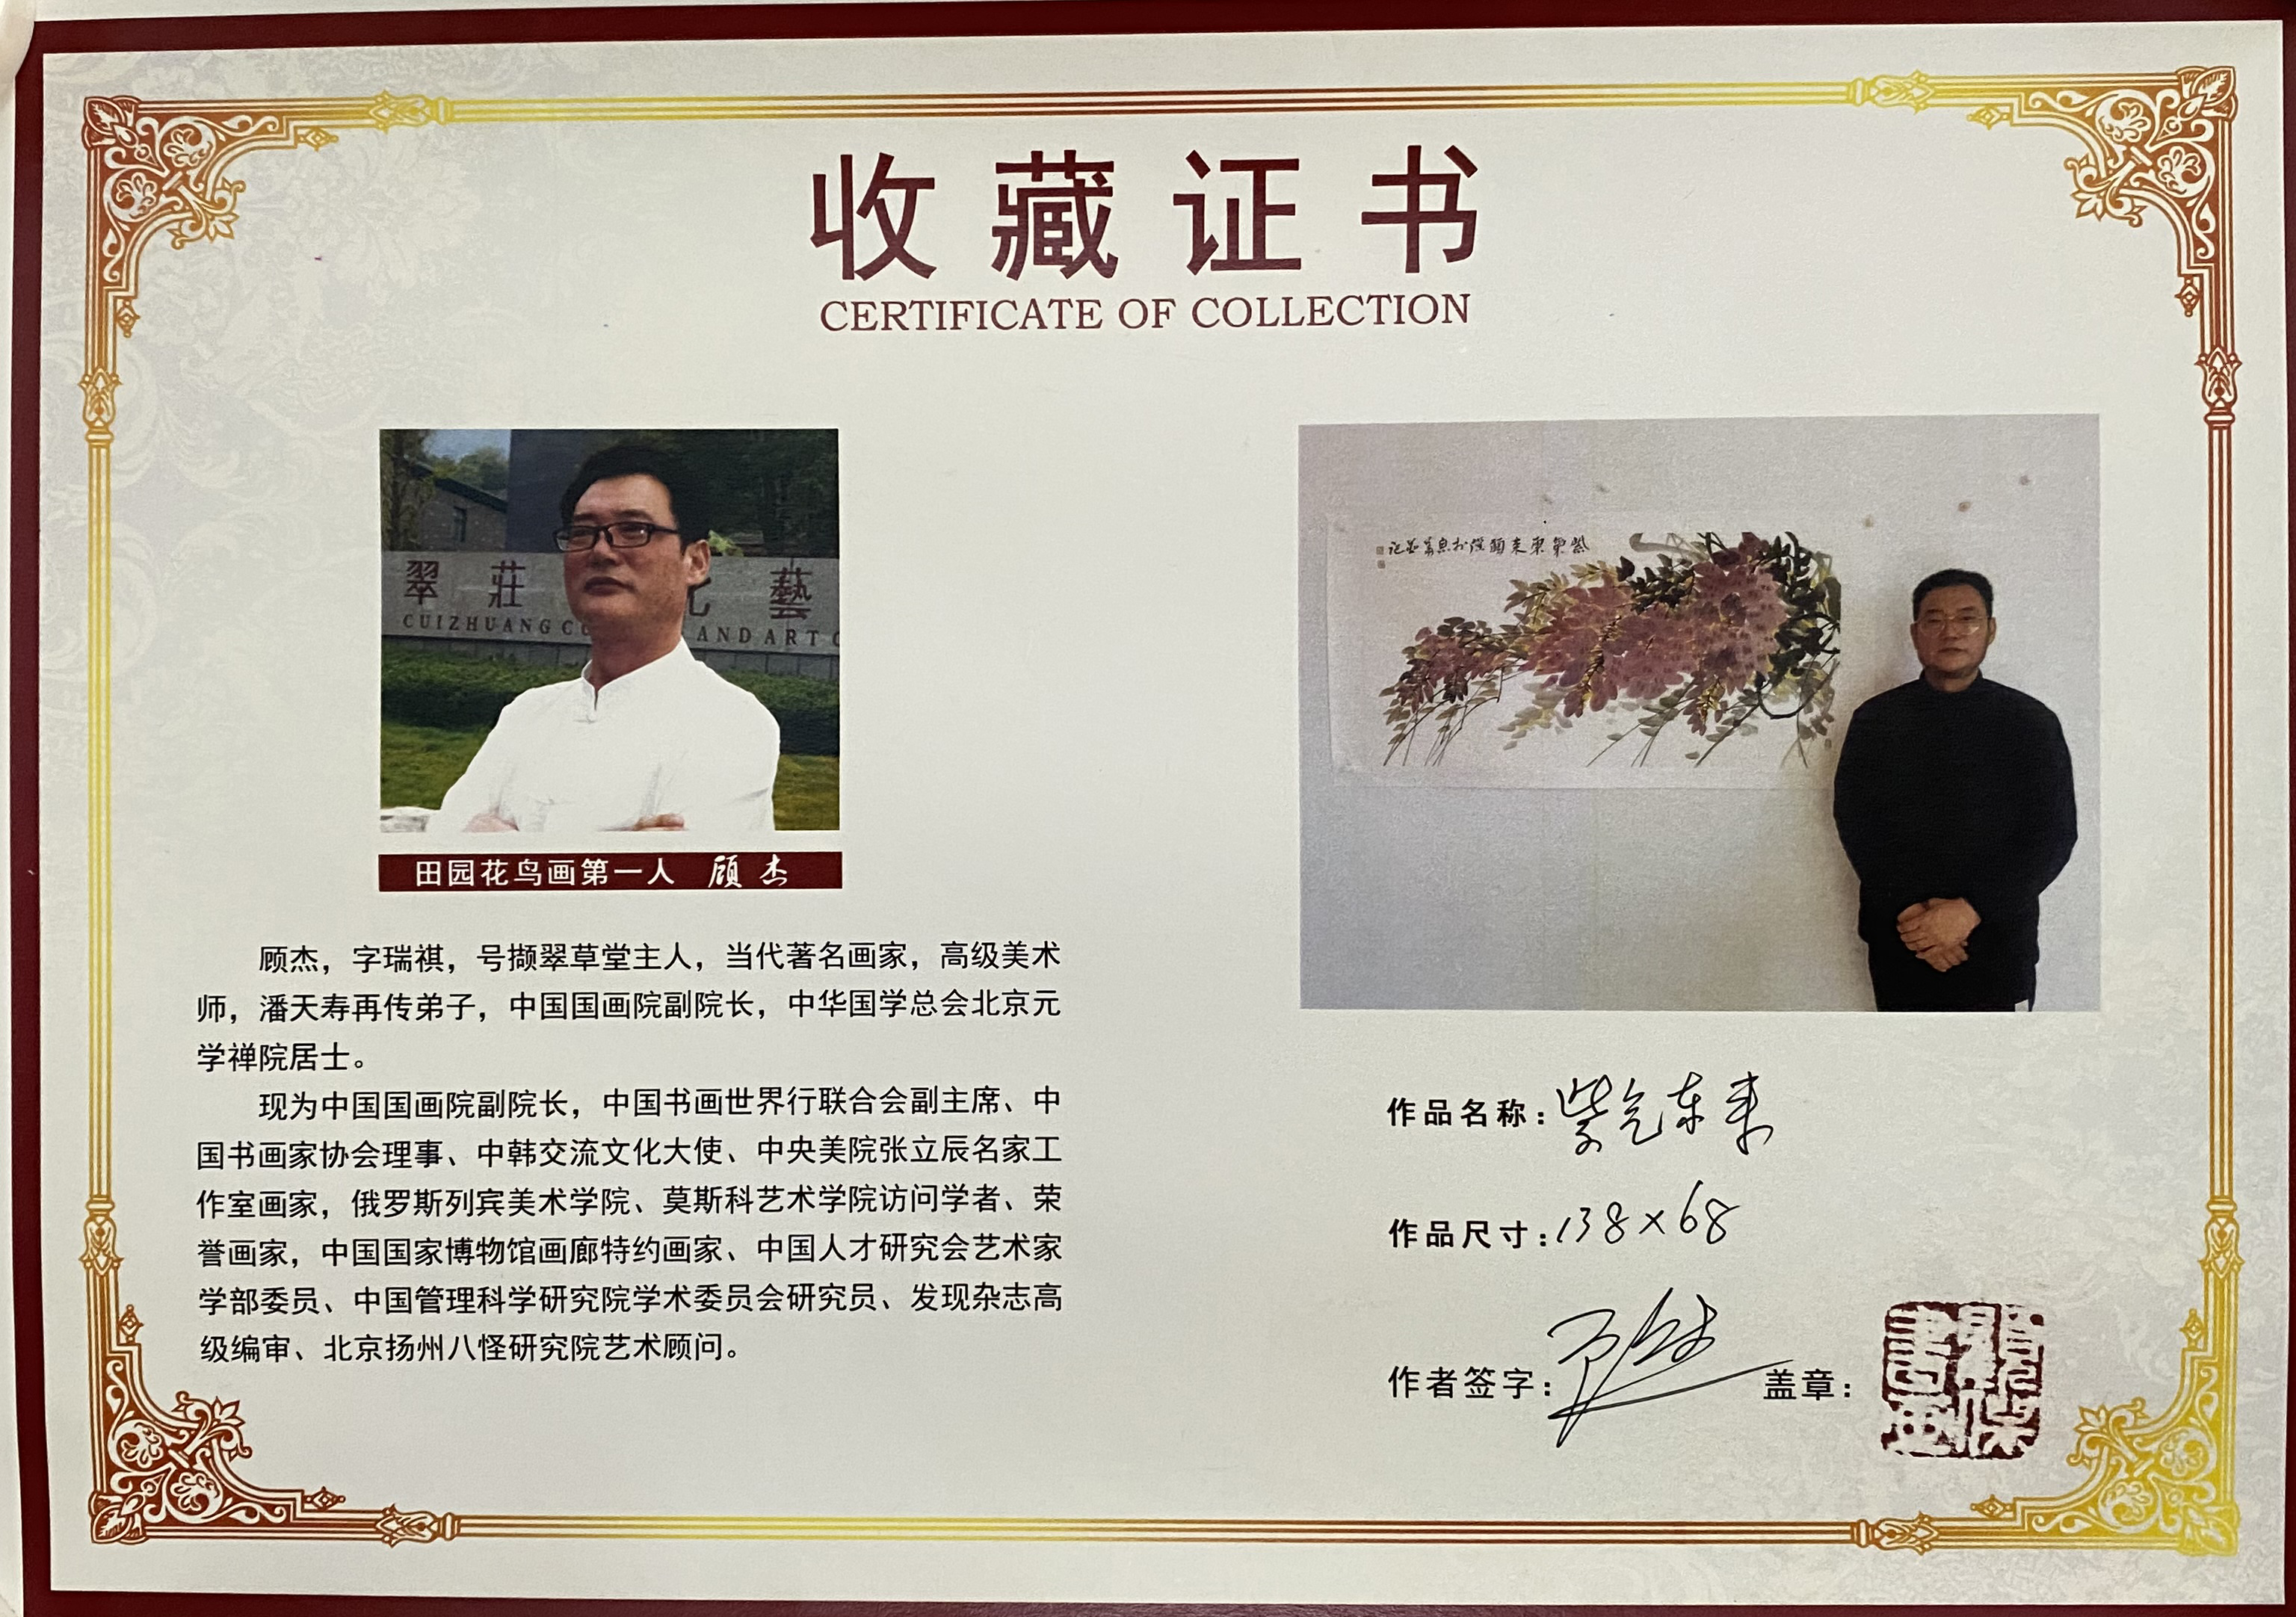 收藏证书
CERTIFICATE OF COLLECTION
翠 莊 藝
CUIZHUANG AND ART
田园花鸟画第一人 顾杰
顾杰，字瑞祺，号撷翠草堂主人，当代著名画家，高级美术
师，潘天寿再传弟子，中国国画院副院长，中华国学总会北京元
学禅院居士。
现为中国国画院副院长，中国书画世界行联合会副主席、中
国书画家协会理事、中韩交流文化大使、中央美院张立辰名家工
作室画家，俄罗斯列宾美术学院、莫斯科艺术学院访问学者、荣
誉画家，中国国家博物馆画廊特约画家、中国人才研究会艺术家
学部委员、中国管理科学研究院学术委员会研究员、发现杂志高
级编审、北京扬州八怪研究院艺术顾问。
作品名称：紫气东来
作品尺寸：138×68
作者签字：顾杰 盖章：